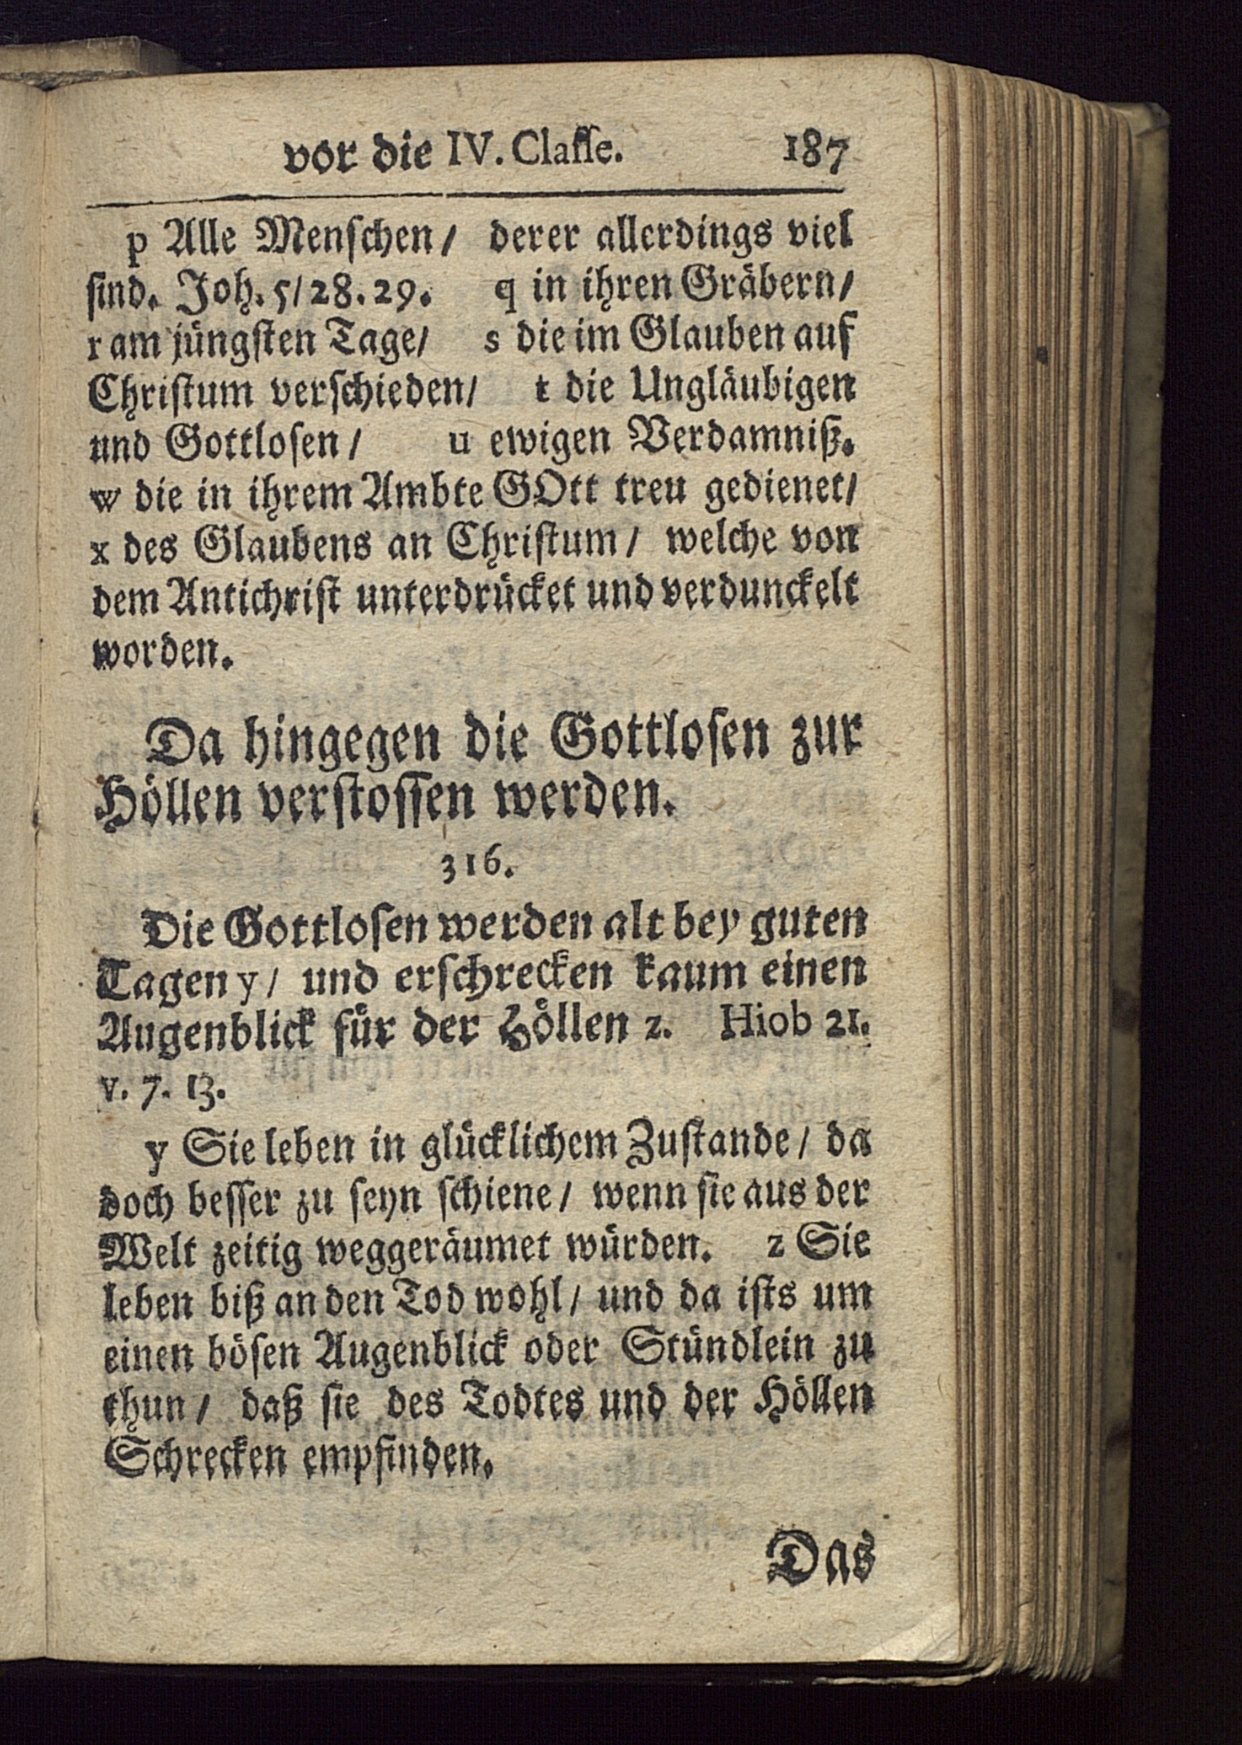 vor die IV. Classe. 187
p Alle Menschen/ derer allerdings viel
sind. Joh. 5/28.29. q in ihren Gräbern/
r am jüngsten Tage/ s die im Glauben auf
Christum verschieden/ t die Ungläubigen
und Gottlosen/ u ewigen Verdamniß.
w die in ihrem Ambte GOtt treu gedienet/
x des Glaubens an Christum/ welche von
dem Antichrist unterdrücket und verdunckelt
worden.
Da hingegen die Gottlosen zur
Höllen verstossen werden.
316.
Die Gottlosen werden alt bey guten
Tagen y/ und erschrecken kaum einen
Augenblick für der Höllen z. Hiob 21.
v. 7. 13.
y Sie leben in glücklichem Zustande/ da
doch besser zu seyn schiene/ wenn sie aus der
Welt zeitig weggeräumet würden. z Sie
leben biß an den Tod wohl/ und da ists um
einen bösen Augenblick oder Stündlein zu
thun/ daß sie des Todtes und der Höllen
Schrecken empfinden.
Das